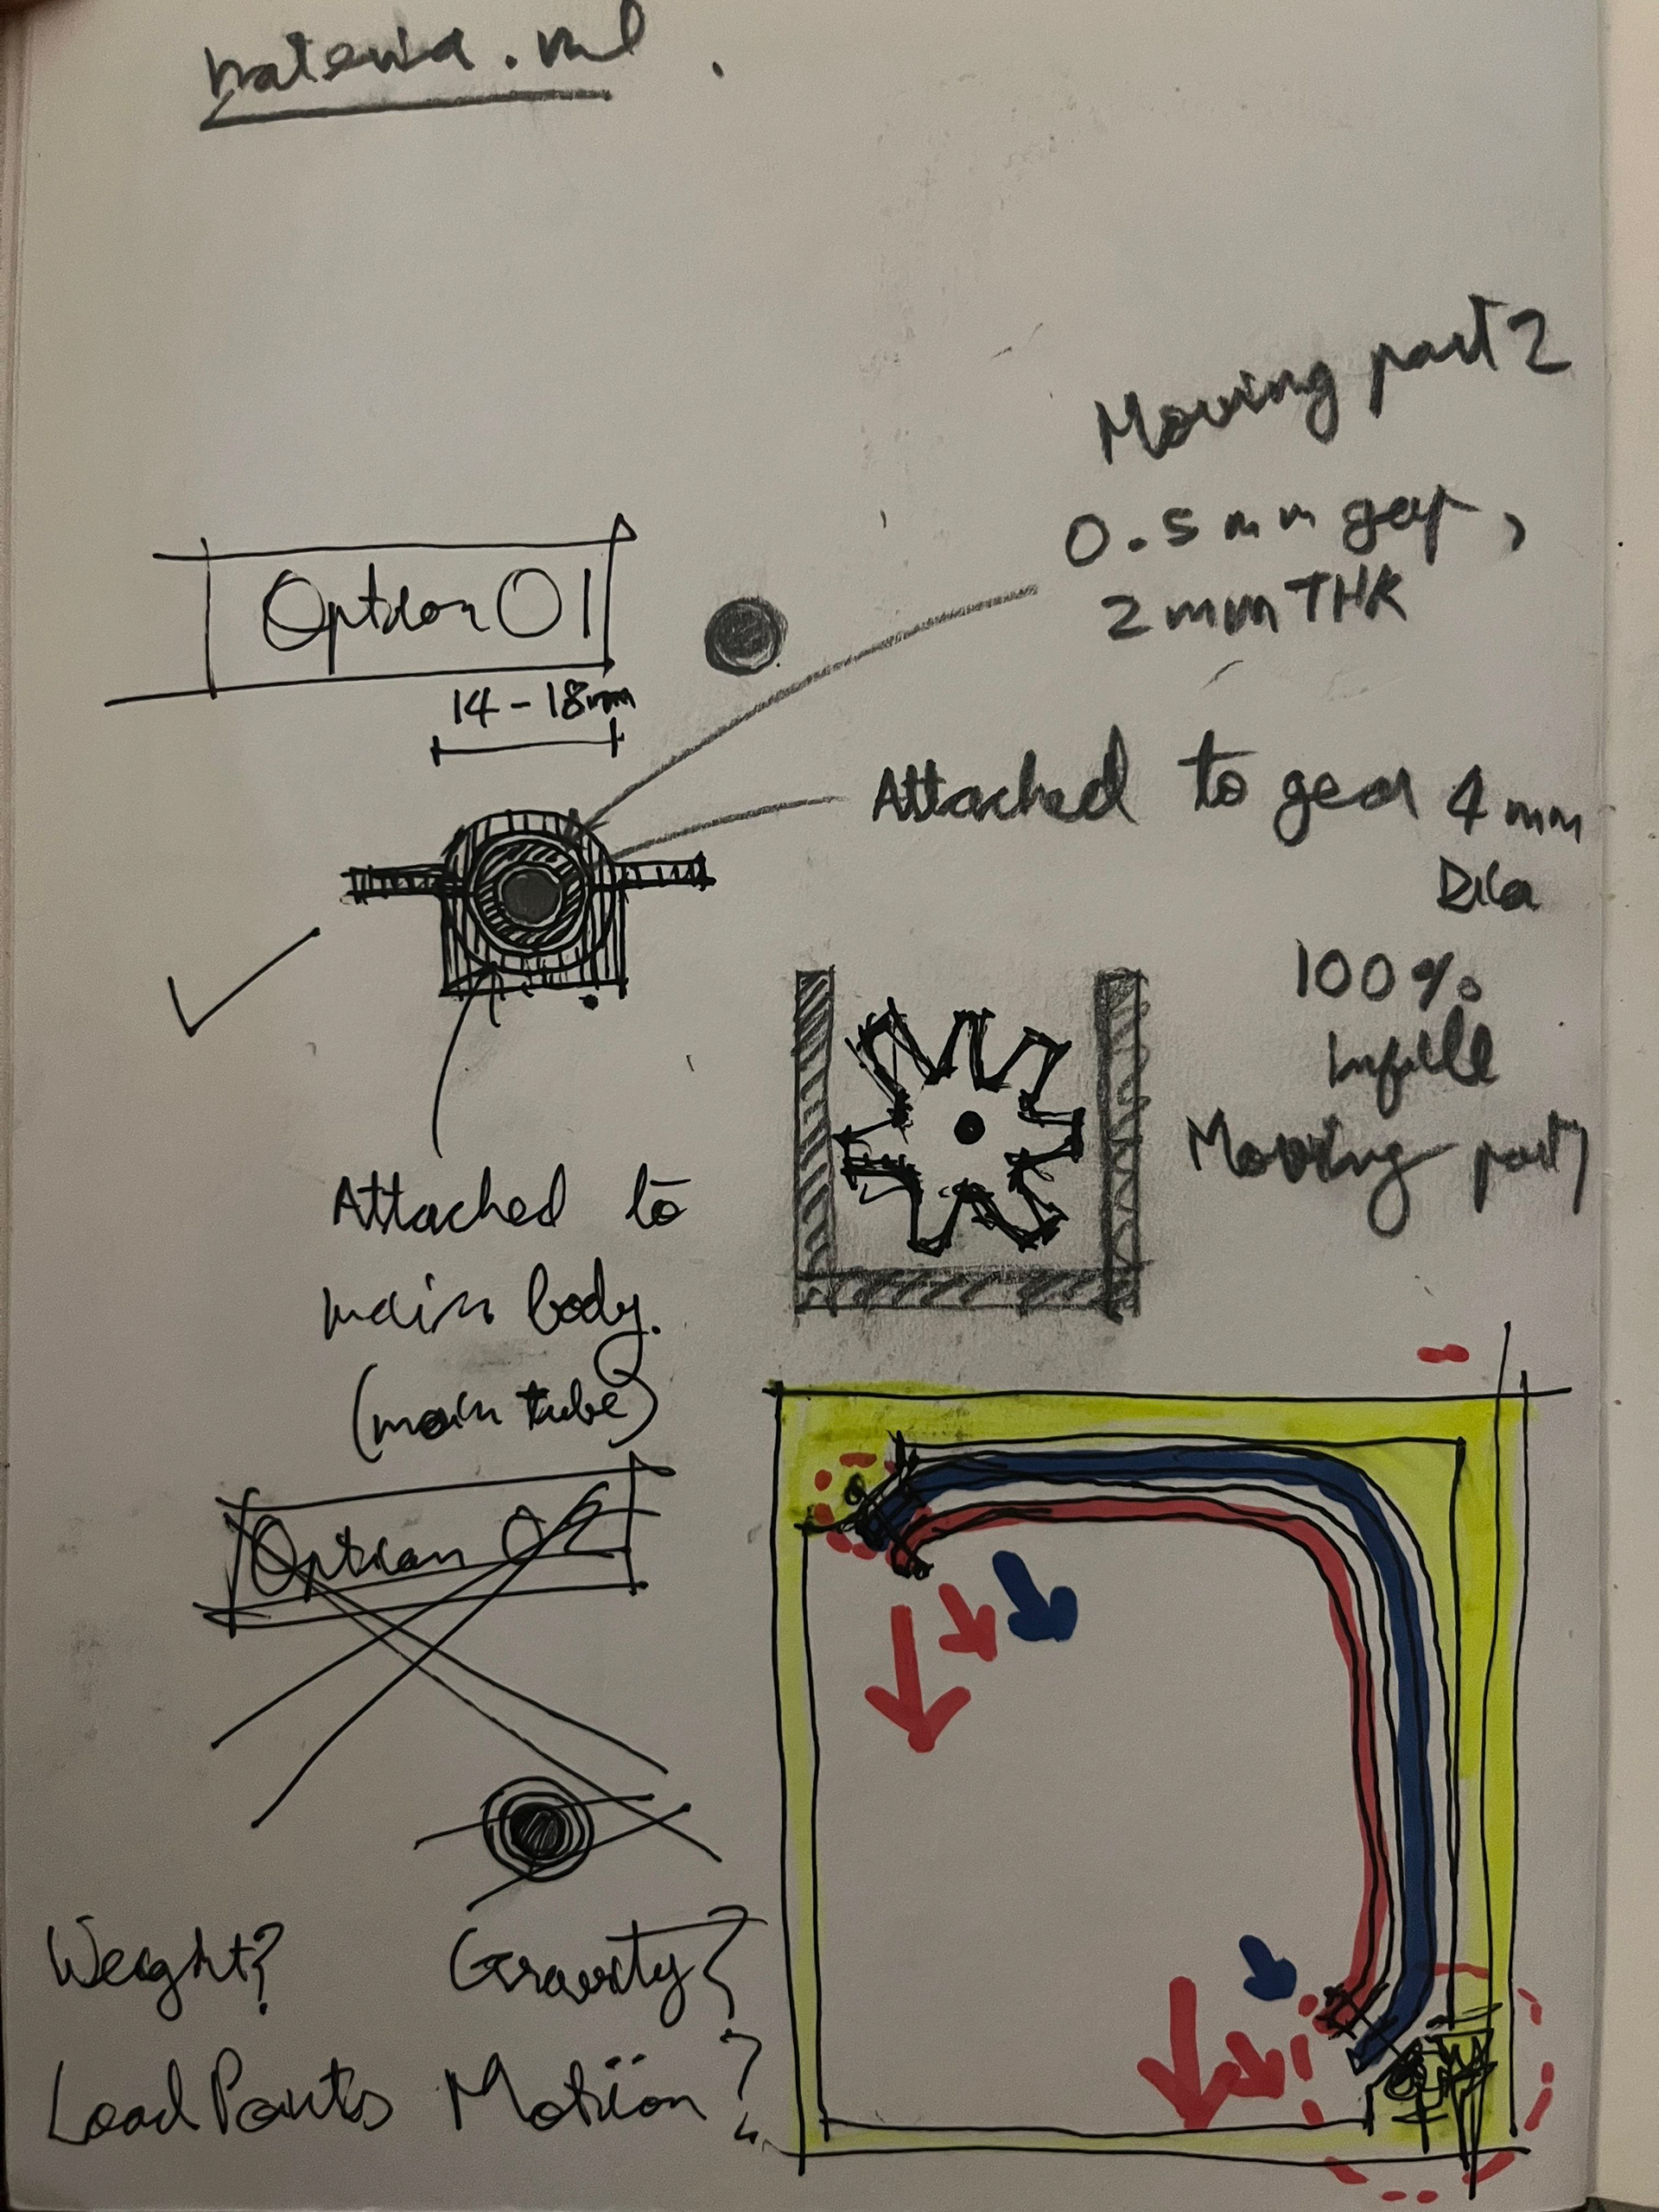 Moving part 2
0.5mm gap,
2mm THK
Option 01
14-18mm
Attached to gear 4mm
Dia
100%
Infill
Moving part 1
Attached to
main body.
(main tube)
Option 02
Weight? Gravity?
Load Points Motion?